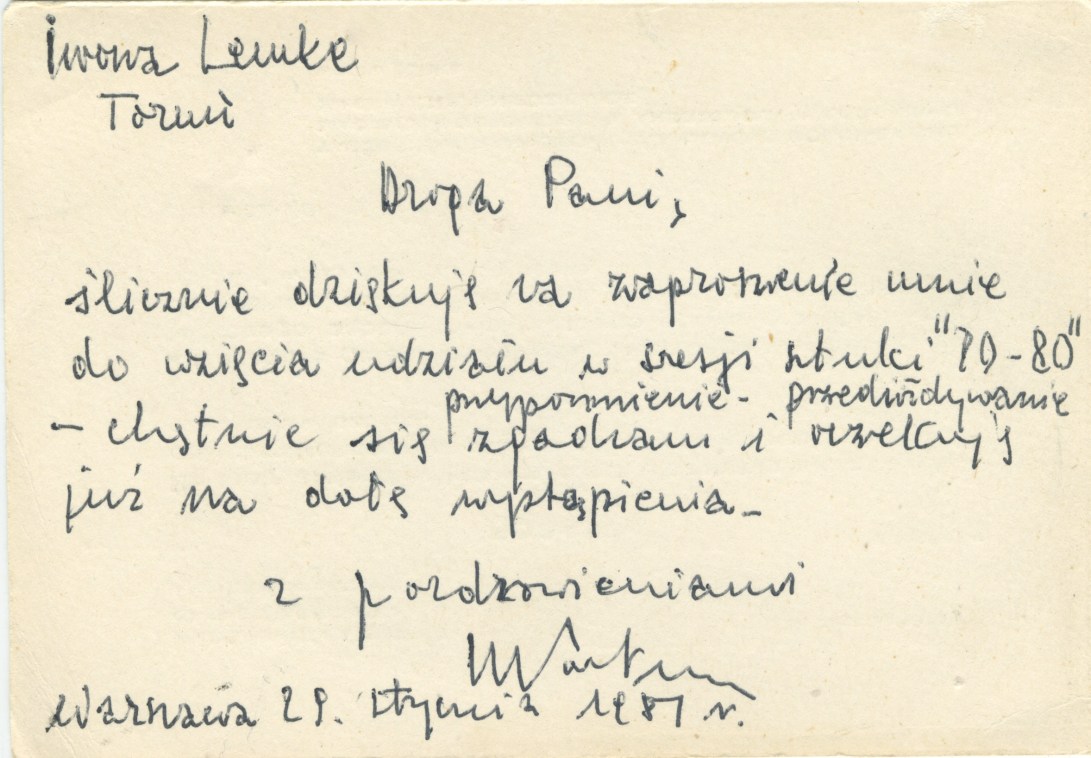 Iwona Lemke
Toruń
Droga Pani,
ślicznie dziękuję za zaproszenie mnie
do wzięcia udziału w sesji sztuki "70-80"
przypomnienie - przedwidywanie
- chętnie się zgadzam i oczekuję
już na datę wystąpienia -
z pozdrowieniami
Warszawa 29. stycznia 1981 r.